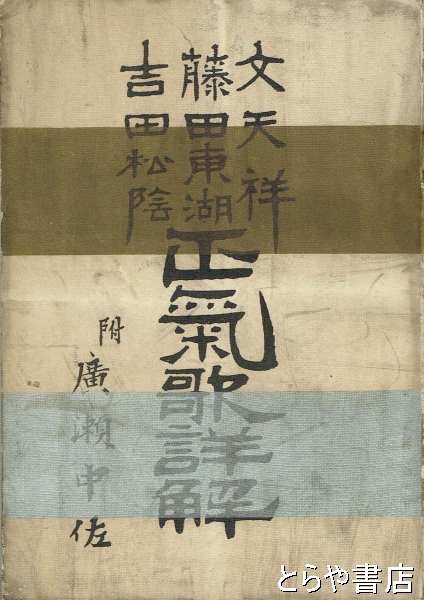 文天祥
藤田東湖
吉田松陰
正氣歌詳解
附
廣瀬中佐
とらや書店